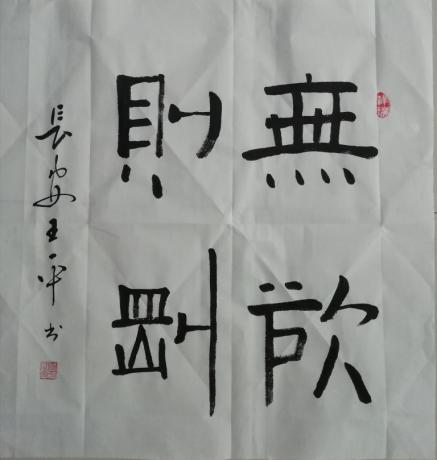 無欲
則剛
長安王平书